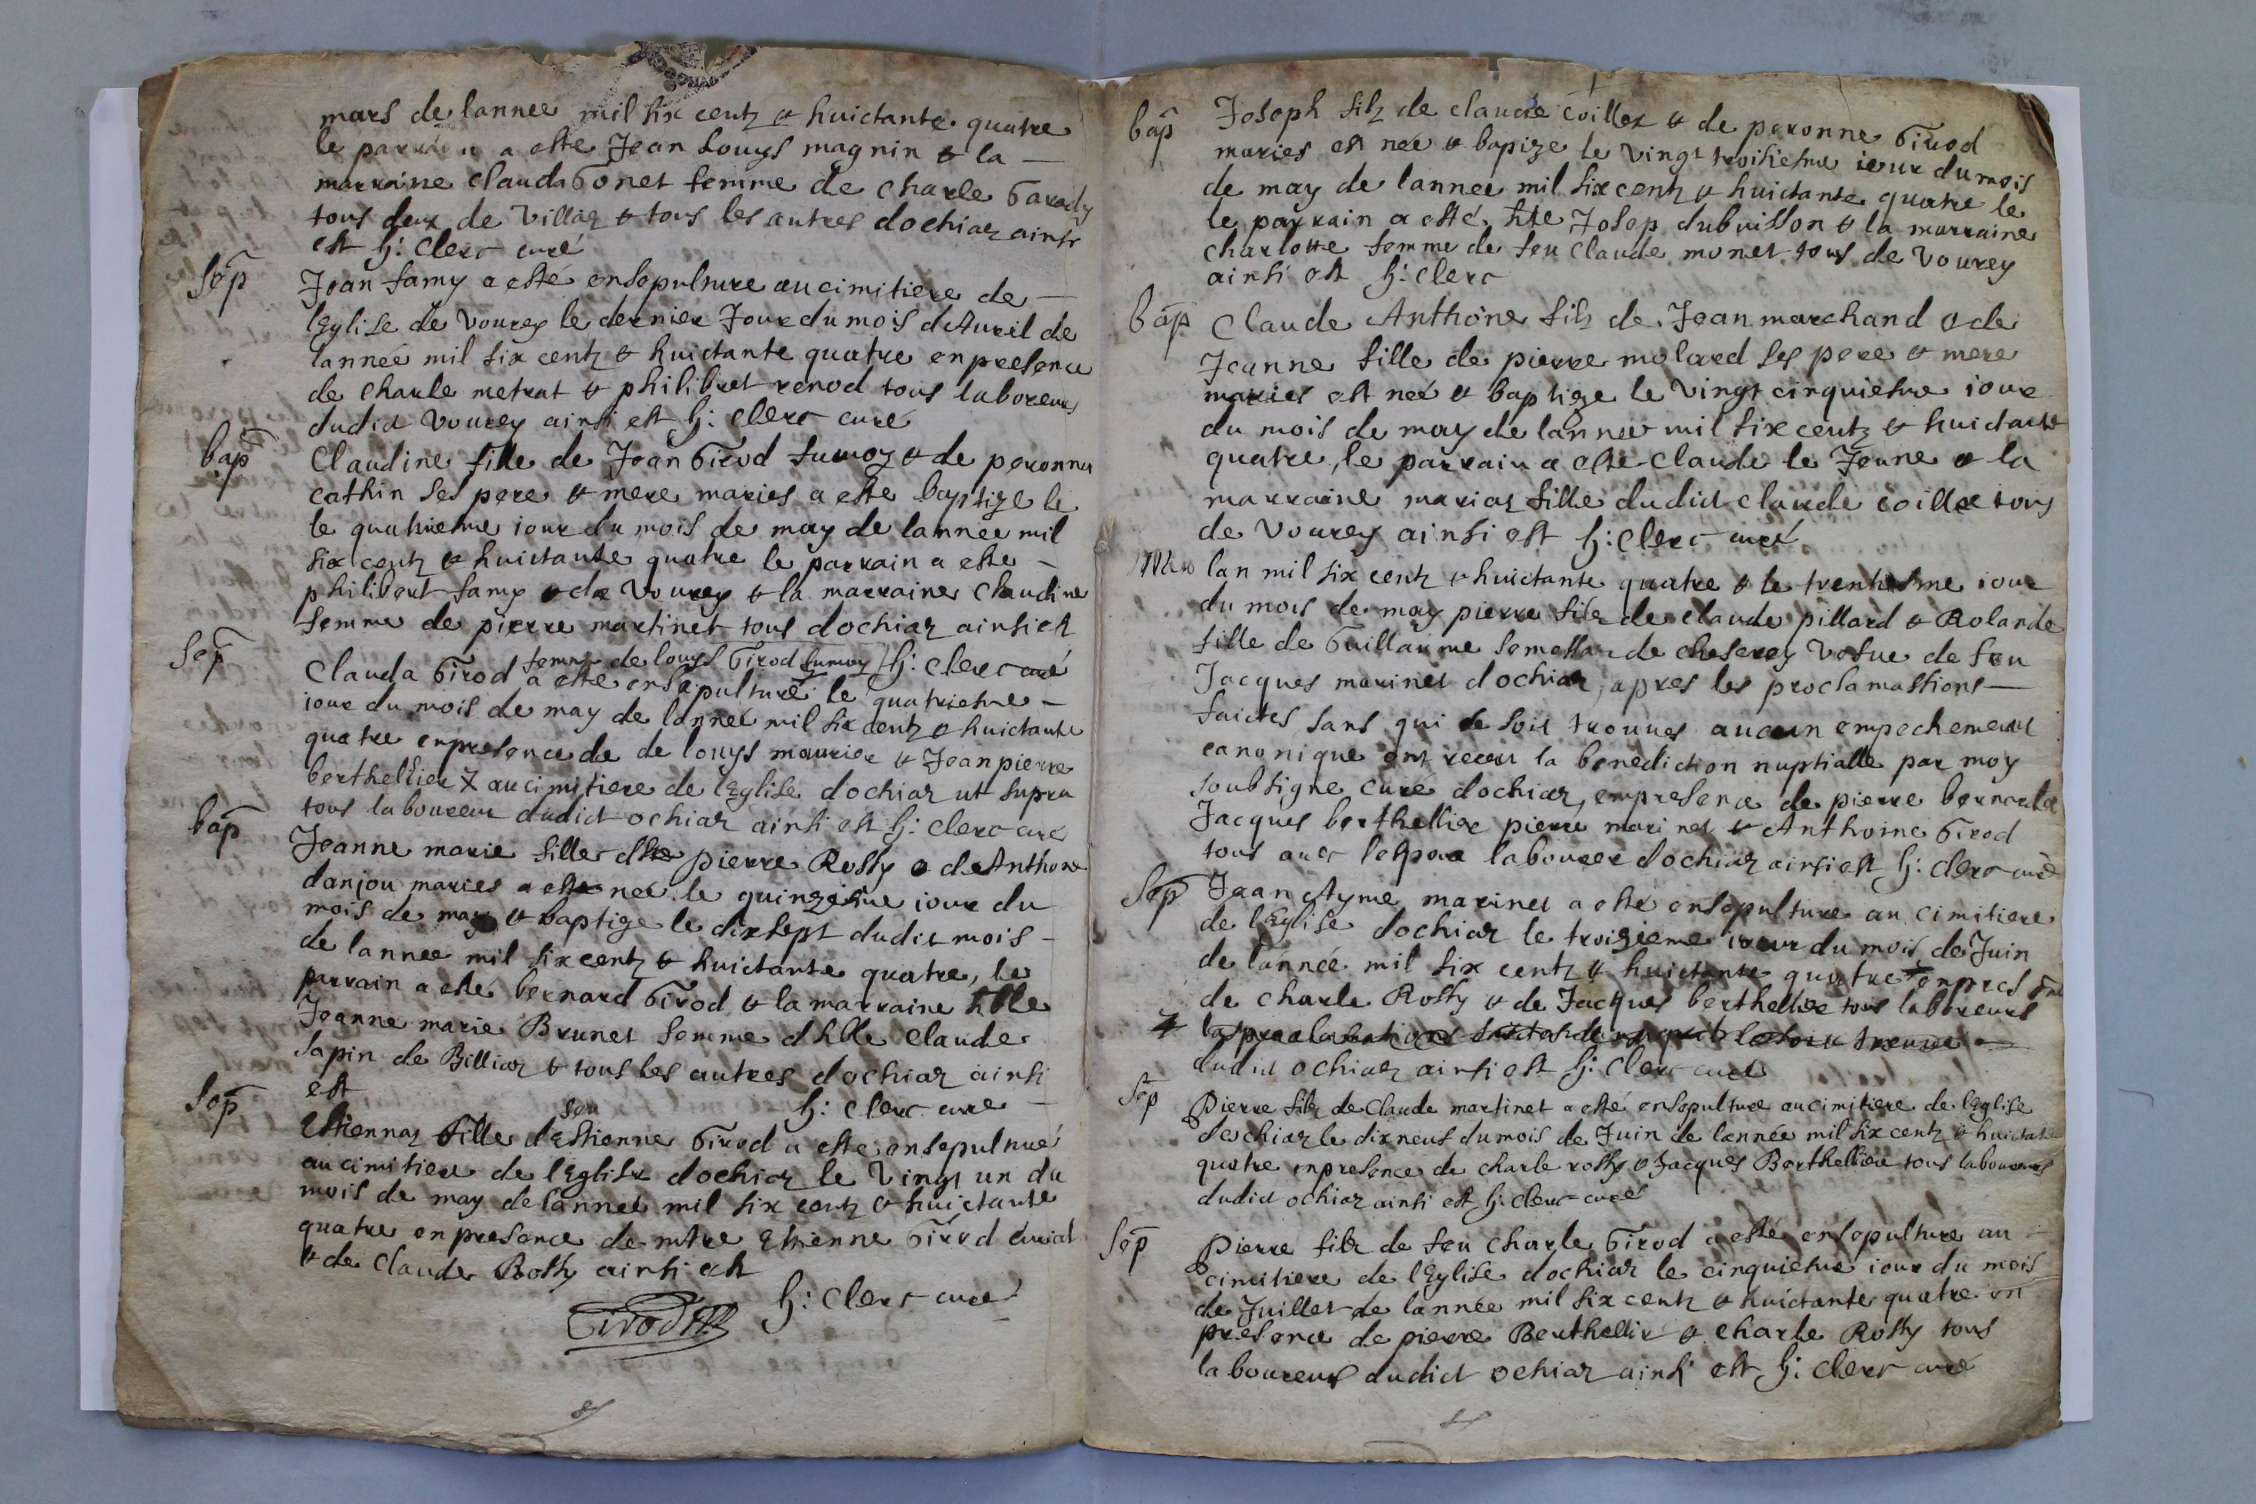 mars de lannee mil six centz & huictante quatre
le parrain a este Jean Louys magnin & la
marraine clauda Gonet femme de charle Gavady
tous deux de Villaz & tous les autres dochiaz ainsi
est h: Clerc curé
Sep Jean famy a esté ensepulture au cimitiere de
lEglise de Vourey le dernier Jour du mois dAuril de
lannée mil six centz & huictante quatre en presence
de charle metrat & philibert renod tous laboreurs
dudict Vourey ainsi est h: Clerc curé
bap Claudine fille de Jean Girod fumoz & de peronne
cathin ses pere & mere maries a este baptize le
le quatriesme iour du mois de may de lannee mil
six centz & huictante quatre le parrain a este
philibert famy & de Vourey & la marraine Claudine
femme de pierre martinet tous dochiaz ainsi est
femme de louys Girod fumoz h: Clerc curé
Sep Clauda Girod a este ensepulture le quatriesme
iour du mois de may de lannée mil six centz & huictante
quatre en presence de de louys maurier & Jean pierre
berthellier au cimitiere de lEglise dochiaz ut supra
tous laboureur dudict ochiaz ainsi est h: Clerc curé
bap Jeanne marie fille de pierre Rossy & de Anthoine
danjou maries a este neé le quinziesme iour du
mois de may & baptize le dixsept dudit mois
de lannee mil six centz & huictante quatre, le
parrain a esté bernard Girod & la marraine
Jeanne marie Brunet femme claude
Sapin de Billiaz & tous les autres dochiaz ainsi
est h: Clerc curé
feu
Sep Estiennaz fille dEstienne Girod a este ensepulture
au cimitiere de lEglise dochiaz le Vingt un du
mois de may de lannee mil six centz & huictante
quatre en presence de Etienne Girod curial
& de Claude Rossy ainsi est
Girod h: Clerc curé
bap Joseph filz de claude coillox & de peronne Girod
maries est neé & bapize le Vingt troisiesme iour du mois
de may de lannee mil six centz & huictante quatre le
parrain a esté Josep dubuisson & la marraine
charlotte femme de feu Claude monet tous de Vourey
ainsi est h: Clerc
bap Claude Anthoine filz de Jean marchand & de
Jeanne fille de pierre molard ses pere & mere
maries est neé & baptize le Vingt cinquiesme iour
du mois de may de lannee mil six centz & huictante
quatre, le parrain a este claude le Jeune & la
marraine mariaz fille dudict claude coillox tous
de Vourey ainsi est h: Clerc curé
lan mil six centz & huictante quatre & le trentiesme iour
du mois de may pierre filz de claude pillard & Rolande
fille de Guillaume de cheserey Vefue de feu
Jacques marinet dochiaz, apres les proclamassions
faictes sans qui se soit trouues aucun empechement
canonique ont receu la benediction nuptialle par moy
soubsigne curé dochiaz, en presence de pierre bernard &
Jacques berthellier pierre marinet & Anthoine Girod
tous auec lespoux labourer dochiaz ainsi est h: Clerc curé
Sep Jean Ayme marinet a esté ensepulture au cimitiere
de lEglise dochiaz le troisieme iour du mois de Juin
de lannée mil six centz & huictante quatre en
de charle Rossy & de Jacques berthellier tous laboreurs
dudict ochiaz ainsi est h: Clerc curé
Sep Pierre filz de Claude martinet a esté ensepulture au cimitiere de lEglise
dochiaz le dix neuf du mois de Juin de lannée mil six centz & huictante
quatre en presence de charle rossy & Jacques Berthellier tous laboureurs
dudict ochiaz ainsi est h: Clerc curé
Sep Pierre filz de feu charle Girod a esté ensepulture au
cimitiere de lEglise dochiaz le cinquiesme iour du mois
de Juillet de lannée mil six centz & huictante quatre en
presence de pierre Berthellier & charle Rossy tous
laboureurs dudict ochiaz ainsi est h: Clerc curé